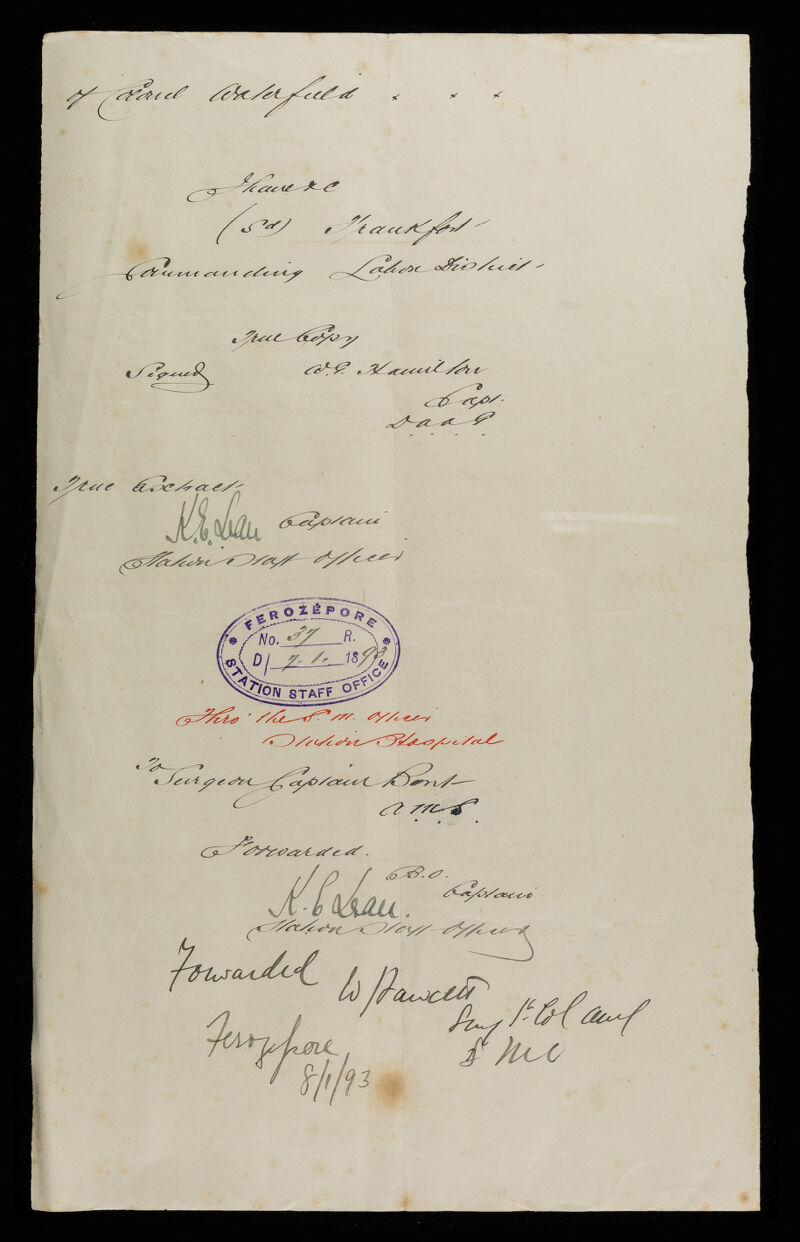 of Colonel Waterfield . . .
I have &c
(Sd) Frankfort
Commanding Lahore District
True Copy
Signed W.G. Hamilton
Capt.
D a a G
True Extract
K.E. Lean Captain
Station Staff Officer
FEROZEPORE
No. 37 R.
D/ 7.1. 1893
STATION STAFF OFFICE
Thro' the S. M. Officer
Station Hospital
To
Surgeon Captain Bent
A M S.
Forwarded.
B.O.
K. E Lean. Captain
Station Staff Officer
Forwarded
W Fawcett
Surg Lt. Col AMS
S M O
Ferozepore
8/1/93